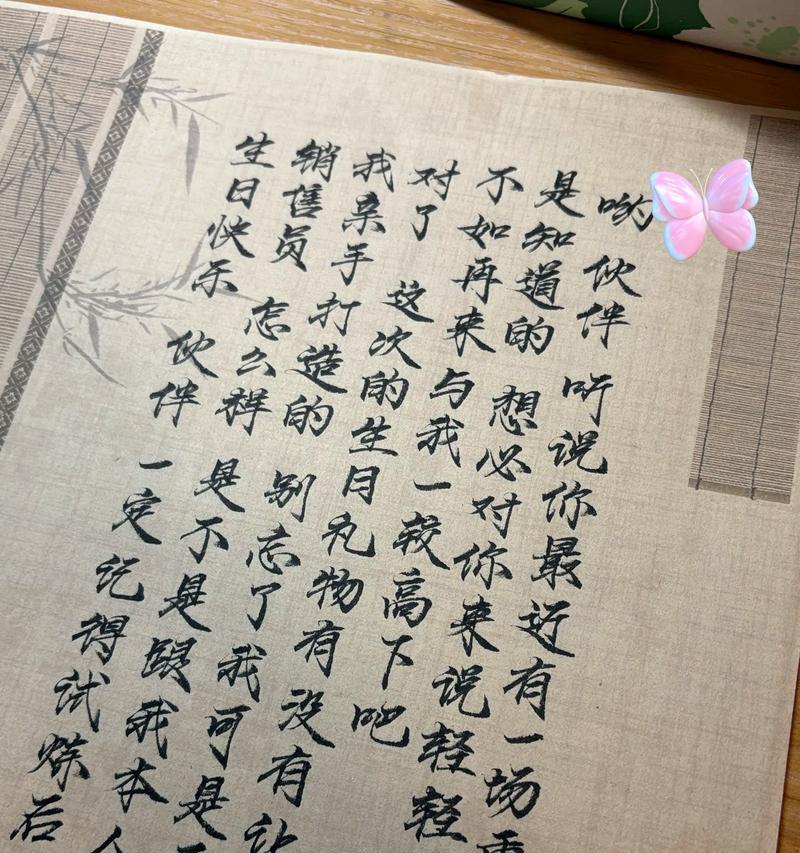 哟 伙伴 听说你最近有一场
是知道的 想必对你来说轻轻
不如再来与我一较高下吧
对了 这次的生日礼物有没有让
我亲手打造的 别忘了我可是
销售员 怎么样 是不是跟我本人
生日快乐 伙伴 一定记得试炼后